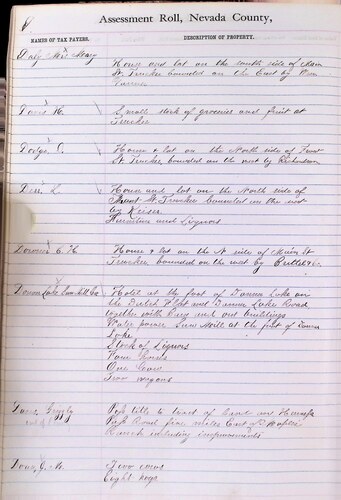 Assessment Roll, Nevada County,
NAMES OF TAX PAYERS.
DESCRIPTION OF PROPERTY.
Daly Mrs Mary
House and lot on the south side of Main
St. Truckee bounded on the East by
Davis H.
Small stock of groceries and fruit at
Truckee
Dodge O.
House & lot on the North side of Front
St Truckee bounded on the west by Richardson
L.
House and lot on the North side of
Front St. Truckee bounded on the west
by Keiser.
Furniture and Liquors
C. H.
House & lot on the N side of Main St
Truckee bounded on the west by
Donner Lake
Hotel at the foot of Donner Lake on
the Dutch Flat and Donner Lake Road
together with Barn and out buildings
Water power Saw Mill at the foot of Donner
Lake
Stock of Liquors
Four Horses
One Cow
Two wagons
Davis,
Poss title to tract of land on Henness
Pass Road five miles East of
Ranch including improvements
J. M.
Two cows
Eight hogs